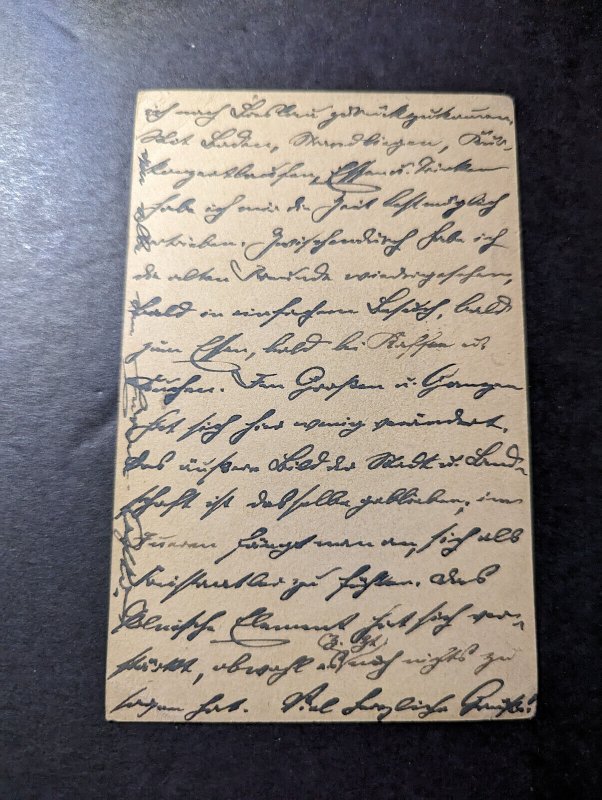 ich nach Breslau zurückzukommen,
Mit Baden, Strandliegen, Kur-
konzertlaufen, Essen u. Trinken
habe ich mir die Zeit bestmöglich
vertrieben. Zwischendurch habe ich
die alten Freunde wiedergesehen,
bald in einfachem Besuch, bald
zum Essen, bald bei Kaffee u.
Kuchen. Im Großen u. Ganzen
hat sich hier wenig verändert.
Das äußere Bild der Stadt u. Land-
schaft ist dasselbe geblieben; im
Innern fängt man an, sich als
Freistaatler zu fühlen. Das
Polnische Element hat sich ver-
stärkt, obwohl es z. Zt. noch nichts zu
sagen hat. Viel herzliche Grüße!